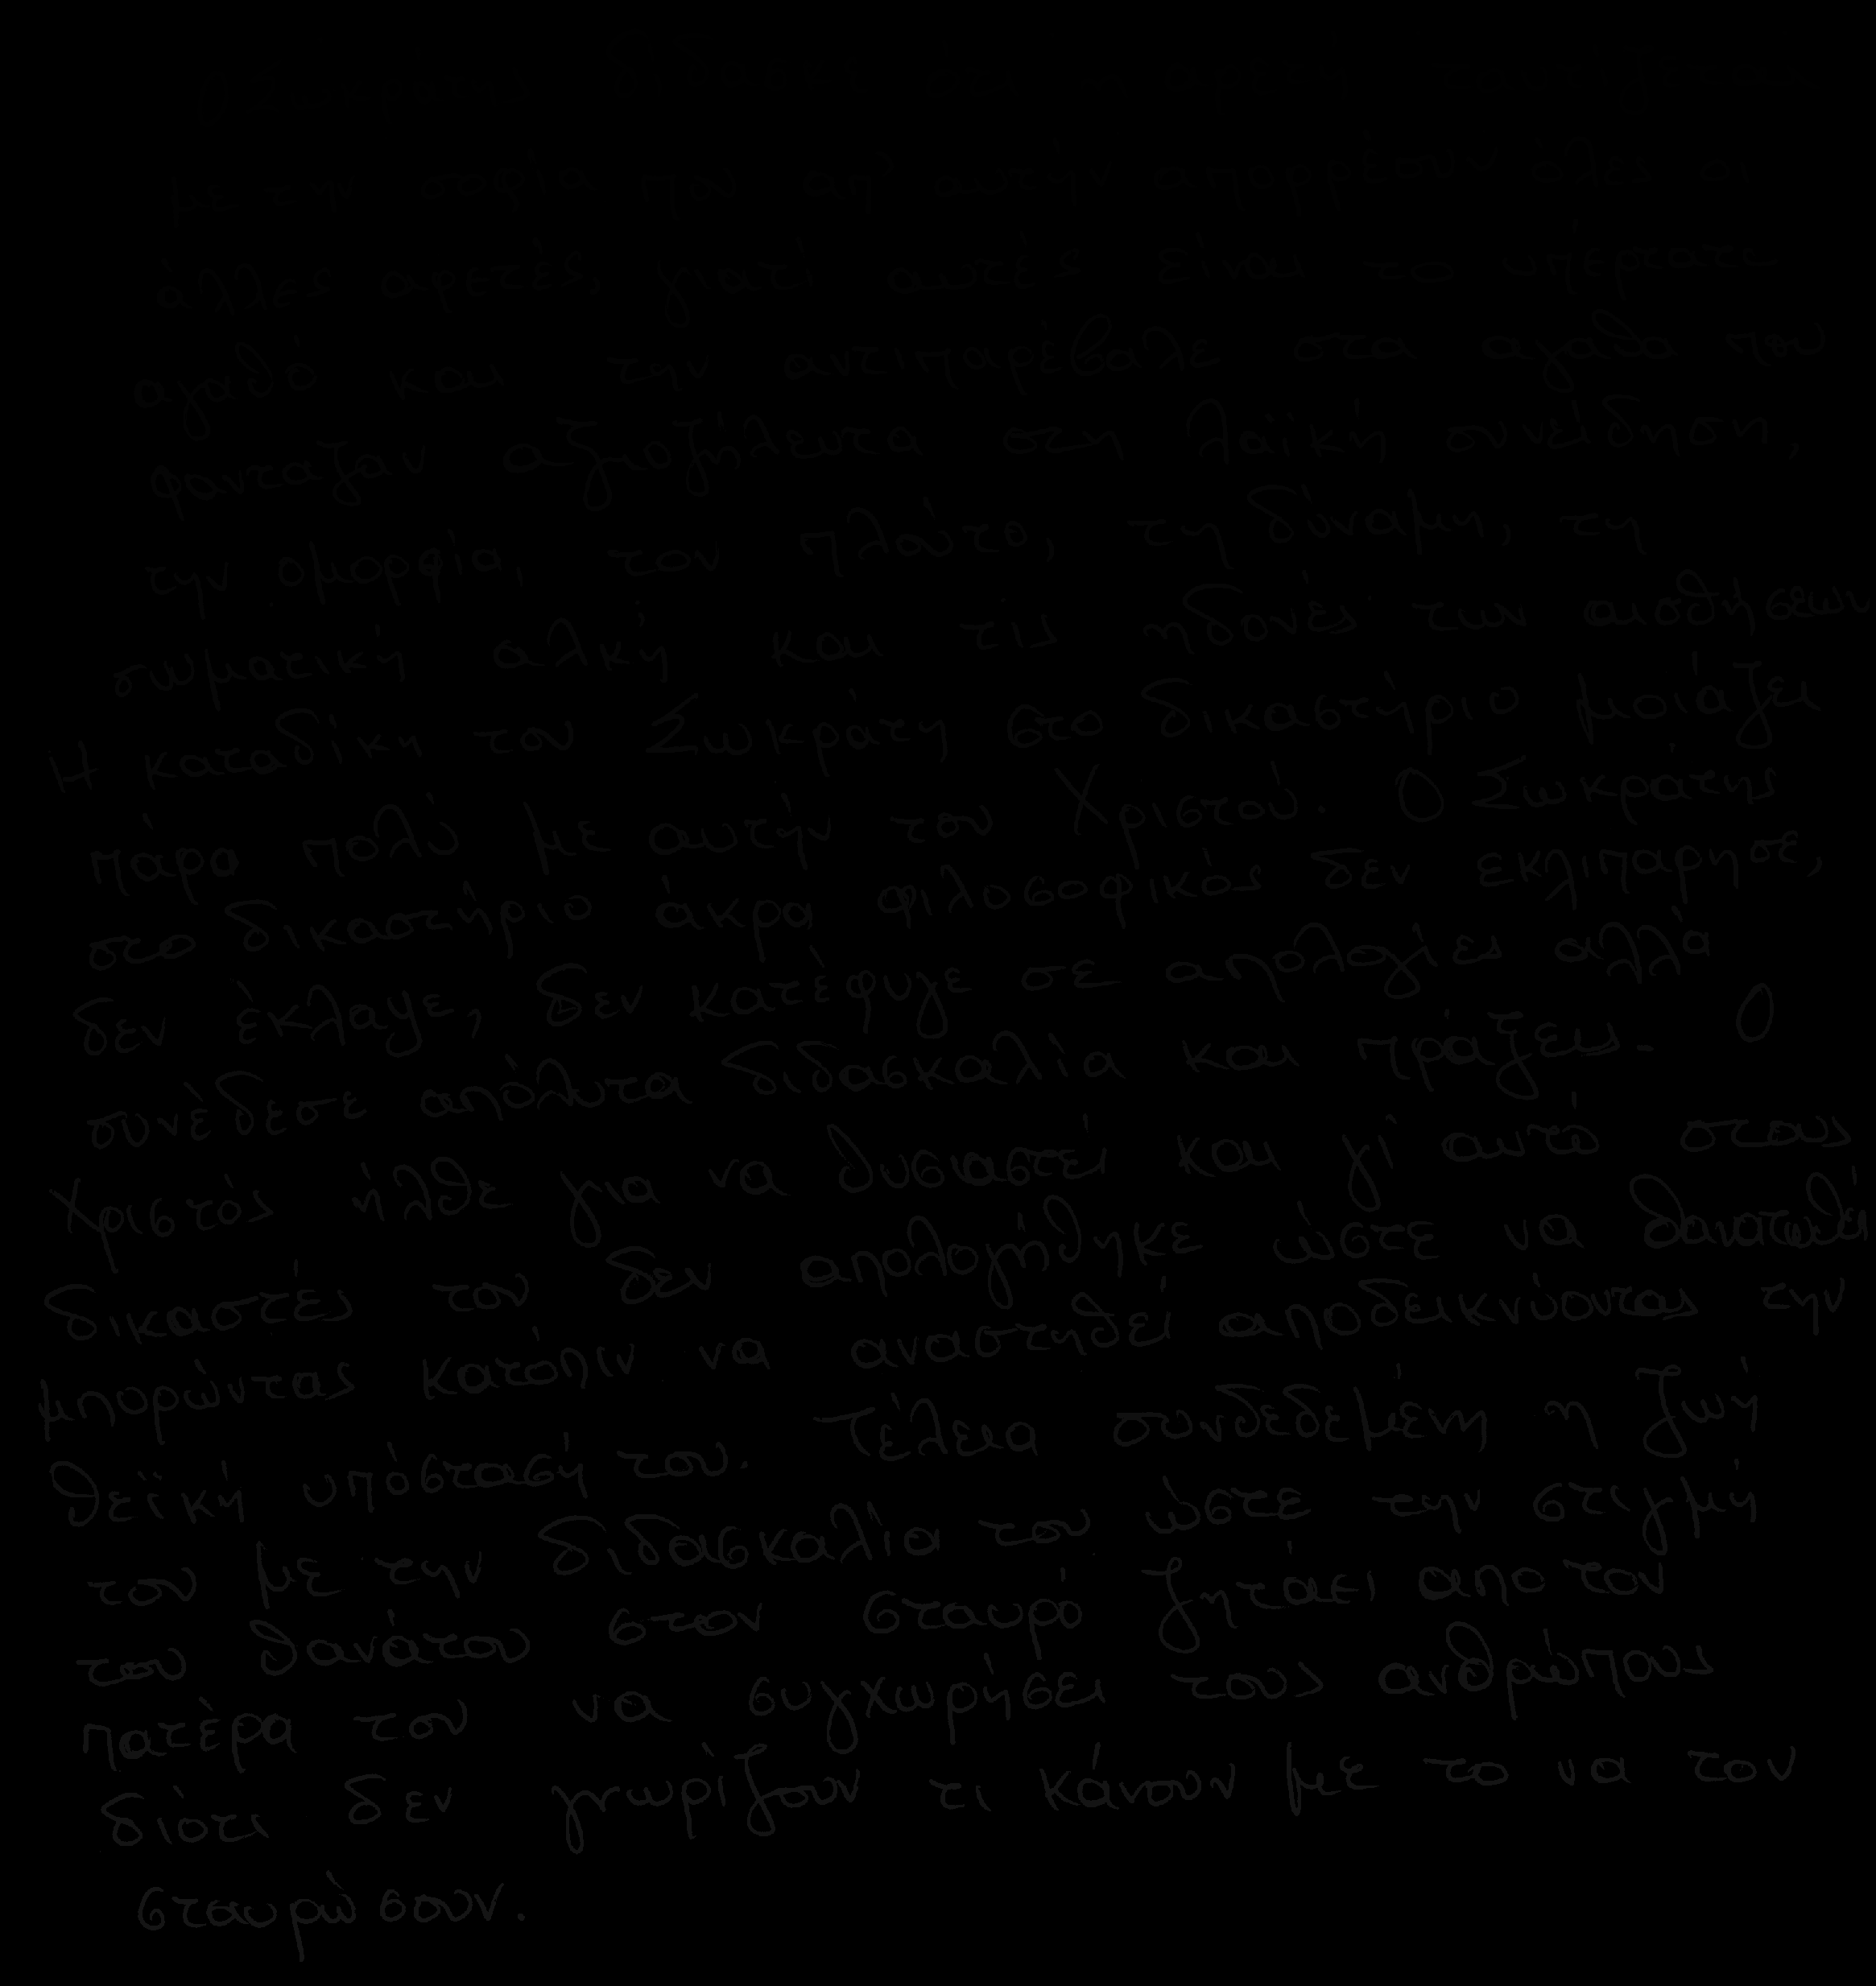 με την σοφία που απ' αυτήν απορρέουν όλες οι
άλλες αρετές, γιατί αυτές είναι το υπέρτατο
αγαθό και την αντιπαρέβαλε στα αγαθα που
φανταζαν αξιοζήλευτα στη λαϊκή συνείδηση,
την ομορφία, τον πλούτο, τη δύναμη, τη
σωματική αλκή και τις ηδονές των αισθήσεων
Η καταδίκη του Σωκράτη στο δικαστήριο μοιάζει
πάρα πολύ με αυτήν του Χριστού. Ο Σωκράτης
στο δικαστήριο άκρα φιλοσοφικός δεν εκλιπαρησε,
δεν έκλαψε, δεν κατέφυγε σε απολογίες αλλά
συνέδεσε απόλυτα διδασκαλία και πράξεις. Ο
Χριστός ήλθε για να θυσιαστεί και γι αυτό στους
δικαστές του δεν απολογήθηκε ώστε να θανατωθεί
μπορώντας κατόπιν να αναστηθεί αποδεικνύοντας την
θεϊκή υπόστασή του. Τέλεια συνδεδεμένη η ζωή
του με την διδασκαλία του ώστε την στιγμή
του θανάτου στον σταυρό ζητάει απο τον
πατέρα του να συγχωρήσει τους ανθρώπους
διότι δεν γνωρίζουν τι κάνουν με το να τον
σταυρώσουν.